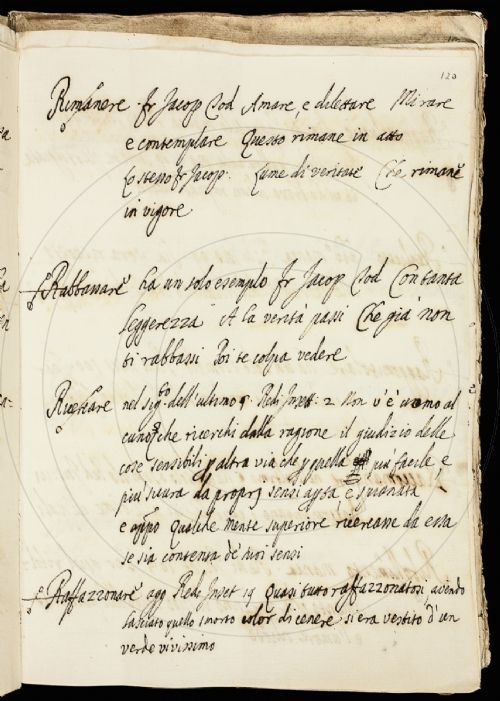 120
Rimanere · fr Jacop Tod Amare, e dilettare Mirare
e contemplare Questo rimane in atto
Lo stesso fr Jacop: Lume di veritate Che rimane
in vigore
Rabbassare ha un solo esemplo fr Jacop Tod Con tanta
leggerezza A la verità passi Che già non
ti rabbassi Poi te colpa vedere
Ricercare nel sig.to dell'ultimo §. Redi Inset: 2 Non v'è uomo al
cuno, che ricerchi dalla ragione il giudizio delle
cose sensibili p altra via che p quella più facile, e
più sicura da proprj sensi aperta, e spianata
e app.o Qualche mente superiore ricercasse da essa
se sia contenta de' suoi sensi
Raffazzonare agg Redi Inset 19 Quasi tutto raffazzonatosi avendo
lasciato quello smorto color di cenere si era vestito d'un
verde vivissimo